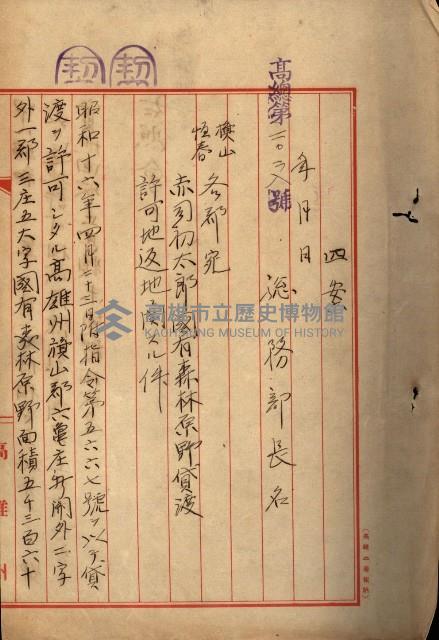 四安
高總第一〇二八號
年 月 日 總務部長名
旗山
恒春
各郡宛
赤司初太郎國有森林原野貸渡
許可地返地ニ関スル件
昭和十六年四月二十三日附指令第五六六七號ヲ以テ貸
渡ヲ許可シタル高雄州旗山郡六龜庄
外一郡三庄五大字國有森林原野面積五千三百六十
契
契
高雄市立歷史博物館
KAOHSIUNG MUSEUM OF HISTORY
高雄州